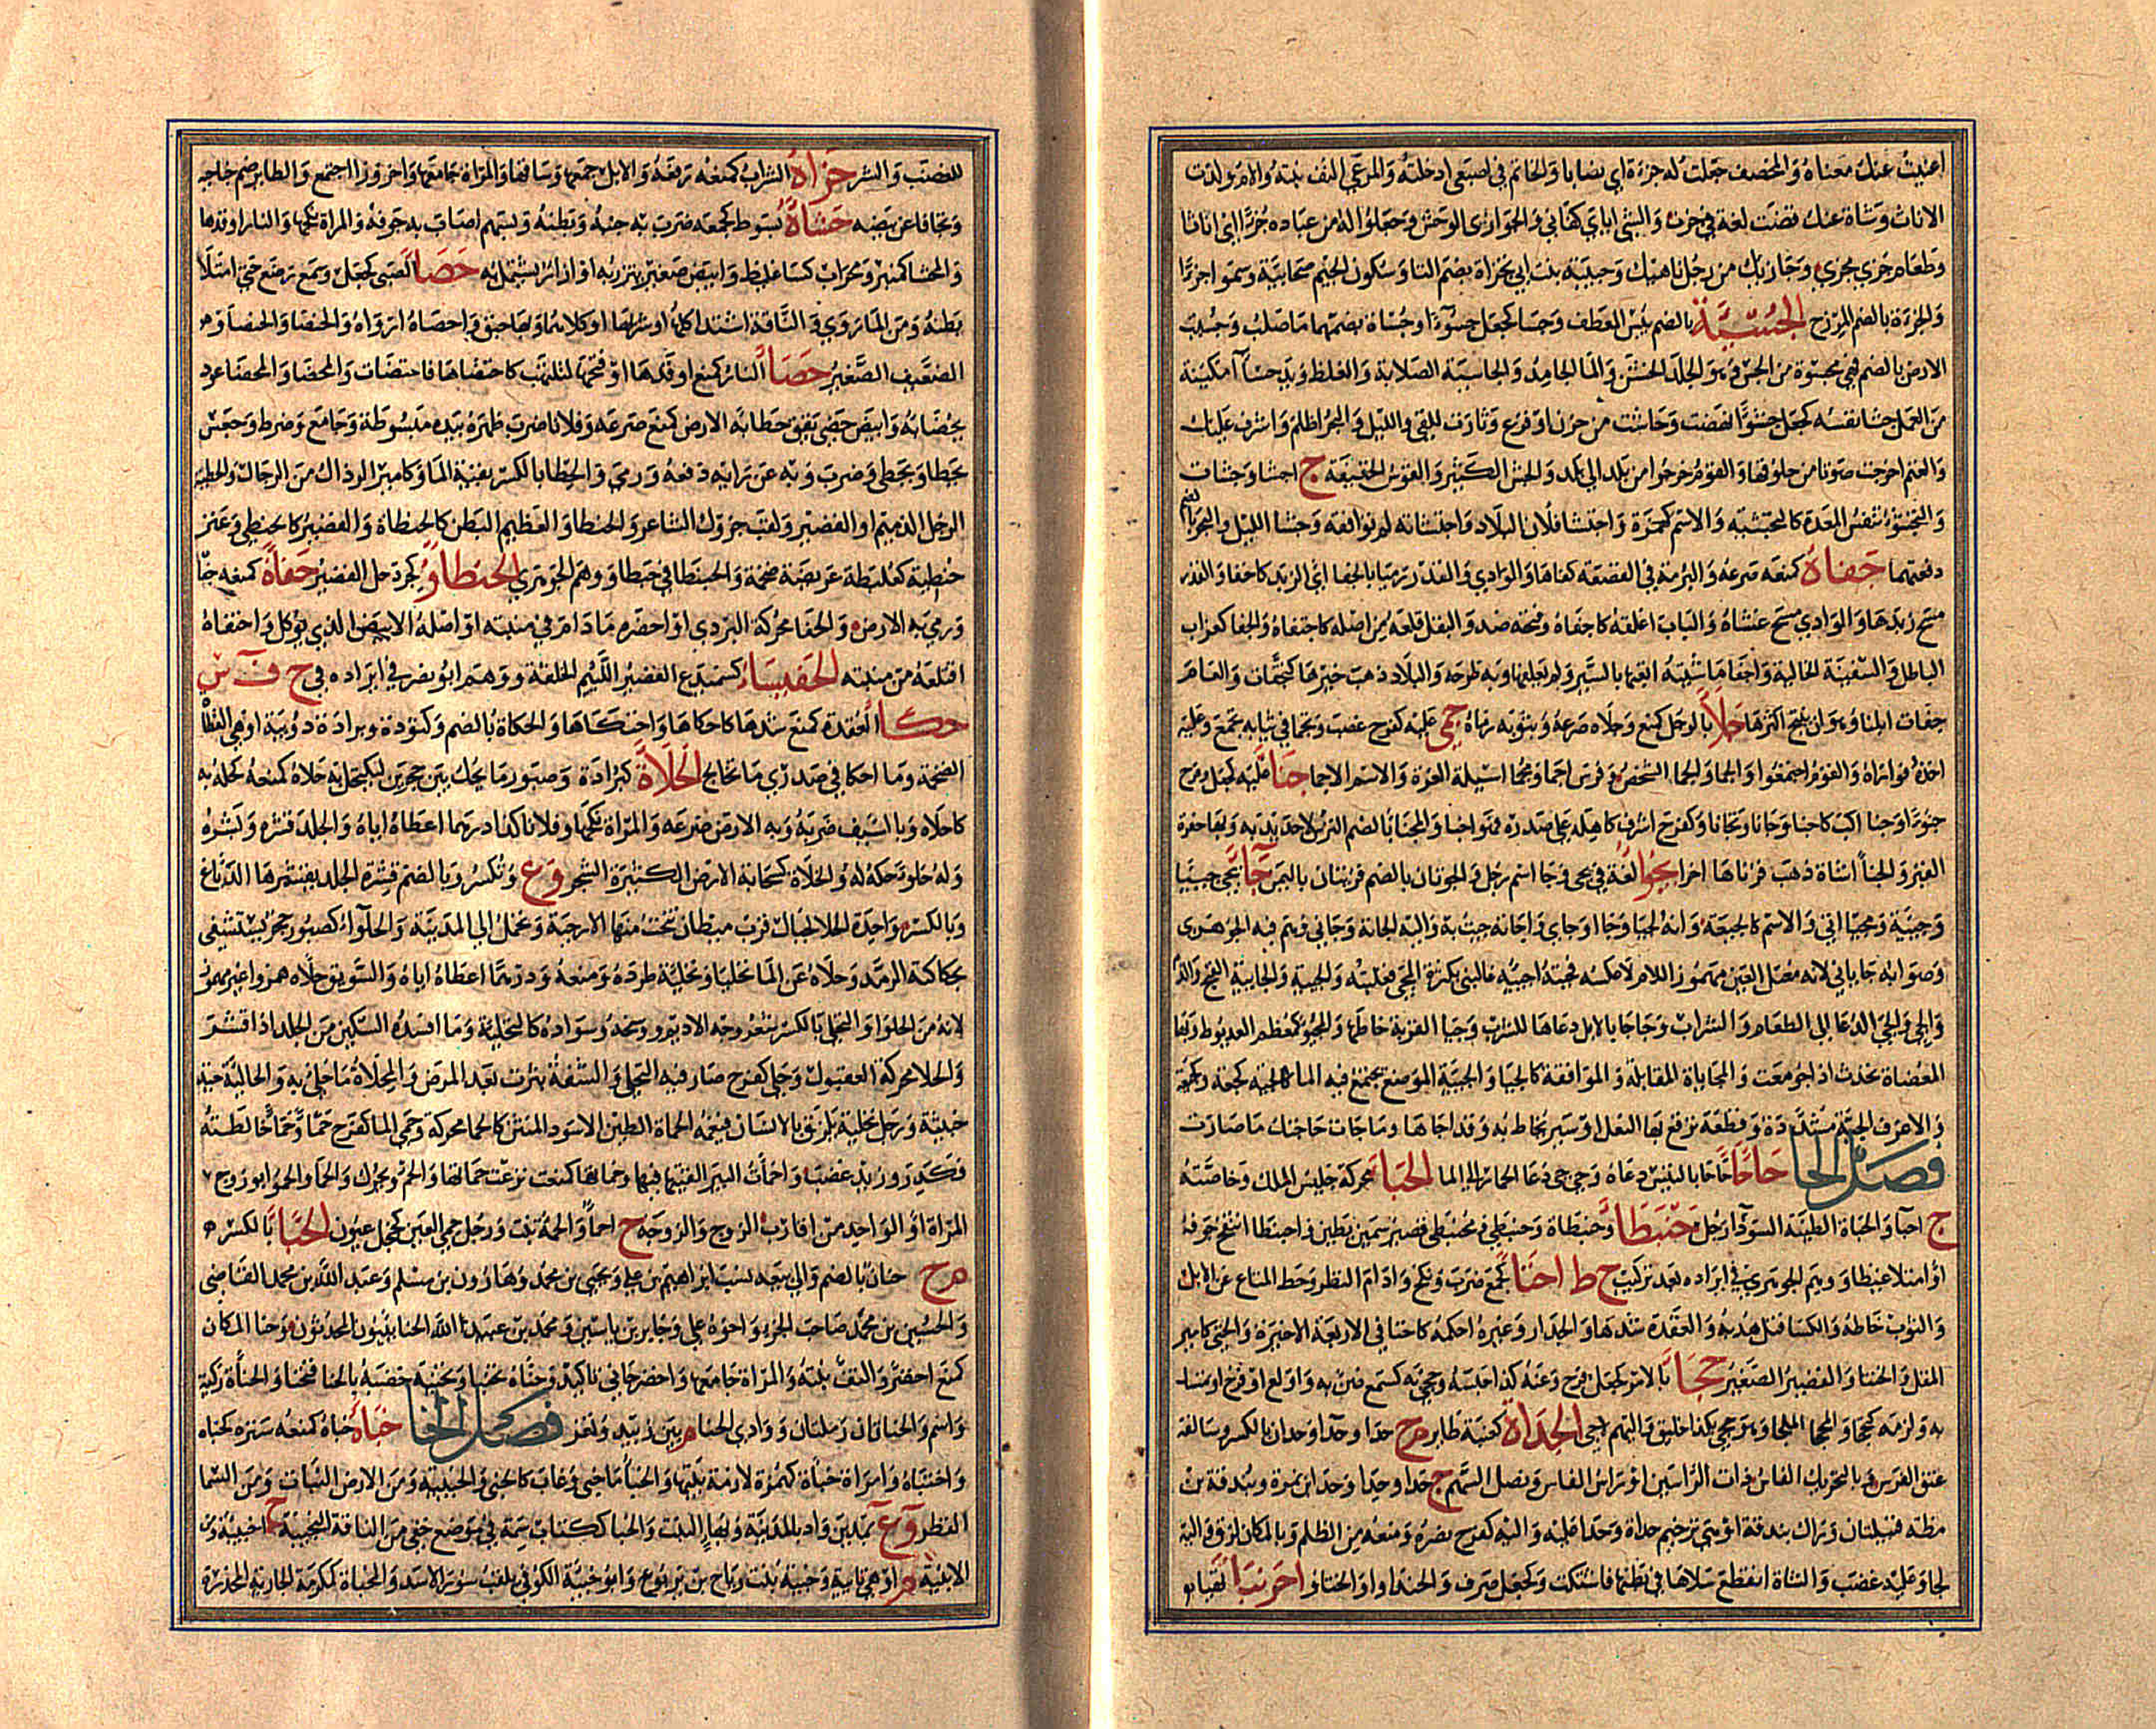 اغنيتُ عنك معناه والمخصف جعلت له جزءة اي نصابا والخاتم في اصبعي ادخلته والمرعى التف نبته والام ولدت
الاناث وشاة عنك قضت لغة في جزت والشى اياي كفاني والجوازئ الوحش وجعلوا له من عباده جزءا اي اناثا
وطعام جزئ مجزئ وجازيك من رجل ناهيك وحبيبة بنت ابي تجزاة بضم التا وسكون الجيم صحابية وسموا جزءا
والجزءة بالضم المرزح الجُسْيَّة بالضم يبس المعطف وجسا كجعل جسوءا وجُسأة بضمهما صلب وجسيت
الارض بالضم فهي مجسوة من الجسء وهو الجلد الخشن والما الجامد والجاسية الصلابة والغلظ ويد جسآ مكنبة
من العمل جشا نفسه كجعل جشوءا نهضت وجاشت من حزن او فزع وثارت للقي والليل والبحر اظلم واشرف عليك
والغنم اخرجت صوتا من حلوقها والقوم خرجوا من بلد الى بلد والجشء الكثير والقوس الخفيفة ج اجشا وجشات
والتجشؤ تنفس المعدة كالتجشية والاسم كهمزة واجتشا فلان البلاد واجتشاته لم توافقه وجشا الليل والبحر بالضم
دفعتهما جَفَاهُ كمنعه صرعه والبرمة في القصعة كفاها والوادي والقدر رميا بالجفا اي الزبد كاجفا والقدر
مسح زبدها والوادي مسح غثاه والباب اغلقه كاجفاه وفتحه ضد والبقل قلعه من اصله كاجتفاه والجفا كغراب
الباطل والسفينة الخالية واجفا ماشيته اتعبها بالسير ولم يعلفها وبه طرحه والبلاد ذهب خيرها كتجفات والعام
جفات ابلنا وهو ان ينتج اكثرها جَلَأَ بالرجل كمنع وجلاه صرعه وبثوبه رماه جَمِئَ عليه كفرح غضب وتجما في ثيابه تجمع وعليه
اخذه فواراه والقوم اجتمعوا والجما والجما الشخص وفرس اجما ومجما اسيلة الغرة والاسم الاجما جَنَأَ عليه كجعل وفرح
جنوءا وجنا اكب كاجنا وجانا وتجانا وكفرح اشرف كاهله على صدره فهو اجنا والمجنا بالضم الترس لا حديد به وبها حفرة
القبر والجنا شاة ذهب قرناها اخرا يَجُوءُ لغة في يجي وجا اسم رجل والجوتان بالضم قريتان باليمن جَآءَ يجي جييا
وجيئة ومجيا اتى والاسم كالجيعة وانه لجيا وجاا وجاي واجاته جيت به واليه الجاته وجاياني وهم فيه الجوهرى
وصوابه جاياني لانه معتل العين مهموز اللام لا عكسه فجيته اجيؤه غالبني بكثرة المجي فغلبته والجية والجايية القيح والدم
والجي والجي الدعا الى الطعام والشراب وجاجا بالابل دعاها للشرب وجيا القربة خاطها والمجيؤ كمعظم العديوط وبها
المفضاة تحدث اذا جومعت والمجاياة المقابلة والموافقة كالجيا والجيئة الموضع يجتمع فيه الما كالجية كجعة وجيعة
والاعرف الجية مشددة وقطعة ترقع بها النعل او سير يخاط به وقد اجاها وما جات حاجتك ما صارت
فصل الحا حَاحَا حاحا بالتيس دعاه وحي حي دعا الحمار الى الما الحَبَا محركة جليس الملك وخاصته
ج احبآ والحباة الطينة السودآ رجل حَبَنْطَأ وحبنطاة وحبنطي ومحبنطي قصير سمين بطين واحبنطا انتفخ جوفه
او امتلا غيظا ووهم الجوهري في ايراده بعد تركيب ح ط احَتَا كجمع ضرب ونكح وادام النظر وحط المتاع عن الابل
والثوب خاطه والكسا فتل هدبه والعقدة شدها والجدار وغيره احكمه كاحتا في الاربعة الاخيرة والحتي كامير
المقل والحنتا والقصير الصغير حَجَأَ بالامر كجعل فرح وعنه كذا حبسه وحجي به كسمع ضن به واولع او فرح او تمسك
به ولزمه كتحجا والمحجا الملجا وهو حجي بكذا خليق واليهم لاجي الحِدَأَة كعنبة طاير م ج حدا وحدآ وحدان بالكسر وسالفة
عنق الفرس وبالتحريك الفاس ذات الراسين او راس الفاس ونصل السهم ج حدا وحدا وحدا بن نمرة وبندقة بن
مظة قبيلتان وتراك بندقة او هي ترخيم حداة وحدا عليه واليه كفرح نصره ومنعه من الظلم وبالمكان لزق واليه
لجا وعليه غضب والشاة انقطع سلاها في بطنها فاشتكت وكجعل صرف والحنداو والحنتاو احْرَنْبَأَ تهيا
للغضب والشر حَزَأَهُ الشراب كمنعه رفعه والابل جمعها وساقها والمراة جامعها واحزوزا اجتمع والطاير ضم جناحيه
وتجافا عن بيضه حَشَأَهُ بسوط كجمعه ضرب به جنبه وبطنه وبسهم اصاب به جوفه والمراة نكحها والنار اوقدها
والمحشا كمنبر ومحراب كسا غليظ وابيض صغير يتزر به او ازار يشتمل به حَصَأَ الصبي كجعل وسمع رضع حتى امتلا
بطنه ومن الما روي والناقة اشتد اكلها او شربها او كلاهما وبها حبق واحصاه ارواه والحنصا والحنصاو م
الضعيف الصغير حَضَأَ النار كمنع اوقدها او فتحها لتلتهب كاحتضاها فاحتضات والمحضا والمحضا عود
يحضا به وابيض حضي يقق حطا به الارض كمنع صرعه وفلانا ضرب ظهره بيده مبسوطة وجامع وضرط وحبس
يحطا ويحطي وضرب وبه عن رايه دفعه ورمى والحطا بالكسر بقية الما وكامير الرذال من الرجال والحطية
الرجل الدميم او القصير ولقب جرول الشاعر والحنطا والعظيم البطن كالحنطاة والقصير كالحنطي وعنز
حنطية كعلبطة عريضة ضخمة والحبنطا في حبطا ووهم الجوهري الحِنْطَأْوُ كجردحل القصير حَفَأَهُ كمنعه جفا
ورمى به الارض والحفا محركة البردي او اخضره ما دام في منبته او اصله الابيض الذي يوكل واحتفاه
اقتلعه من منبته الحَفَيْسَاءُ كسميدع القصير اللئيم الخلقة ووهم ابو نصر في ايراده في ح ف س
حَكَأَ العقدة كمنع شدها كاحكاها واحتكاها والحكاة بالضم وكتودة وبرادة دويبة او هي العظآ
الضخمة وما احكا في صدري ما تخالج الحُلَاَةُ كبرادة وصبور ما يحك بين حجرين ليكتحل به حلاه كمنعه كحله به
كاحلاه وبالسيف ضربه وبه الارض صرعه والمراة نكحها وفلانا كذا درهما اعطاه اياه والجلد قشره وبشره
وله حلوء حكه له والحلاة كسحابة الارض الكثيرة الشجر وع وتكسر وبالضم قشرة الجلد يقشرها الدباغ
وبالكسر واحدة الحلا لجبال قرب ميطان تنحت منها الارحية وتحمل الى المدينة والحلوآء كصبور حجر يستشفى
بحكاكته الرمد وحلاه عن الما تحليا وتحلية طرده ومنعه ودرهما اعطاه اياه والسويق حلاه همزوا غير مهموز
لانه من الحلوا والتحلي بالكسر شعر وجه الاديم ووسخه وسواده كالتحلية وما افسده السكين من الجلد اذا قشر
والحلا محركة العقبول وحلي كفرح صار فيه التحلي والشفة بثرت بعد المرض والمحلاة ما حلي به والحالية حية
خبيثة ورجل تحلية يلزق بالانسان فيغمه الحماة الطين الاسود المنتن كالحما محركة وحمي الما كفرح حما وحما خالطته
فكدر وزيد غضب واحمات البير القيتها فيها وحماتها كمنعت نزعت حماتها والحمء ويحرك والحما والحمو ابو زوج
المراة او الواحد من اقارب الزوج والزوجة ج احما والحماة نبت ورجل حمي العين كخجل عيون الحِنَّا بالكسر م
م ج حنان بالضم والى بيعه نسب ابراهيم بن علي ويحيى بن محمد وهارون بن مسلم وعبد الله بن محمد القاضي
والحسين بن محمد صاحب الجزء واخوه علي وجابر بن ياسين ومحمد بن عبيد الله الحنائيون المحدثون وحنا المكان
كمنع اخضر والتف نبته والمراة جامعها واخضر حاني تاكيد وحناه تحنيا وتحنية خضبه بالحنا فتحنا والحناة ركية
واسم والحناتان رملتان ووادي الحنا م بين زبيد وتعز فصل الخا خَبَأَهُ خباه كمنعه ستره كخباه
واختباه وامراة خباة كهمزة لازمة بيتها والخبا ما خبي وغاب كالخبي والخبية ومن الارض النبات ومن السما
القطر وع بمدين وواد بالمدينة وبها البنت والخبا ككتاب سمة في موضع خفي من الناقة النجيبة ج اخبية ومن
الابنية م او هي يايية وخبية بنت رياح بن يربوع وابو خبية الكوفي يلقب سور الاسد والمخباة كمكرمة الجارية المخدرة